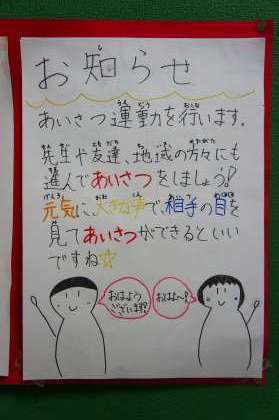 お知らせ
あいさつ運動を行います。
先生や友達、地域の方々にも
進んであいさつをしましょう!
元気に、大きな声で、相手の目を
見てあいさつができるといい
ですね☆
おはよう
ございます!
おはよ〜!